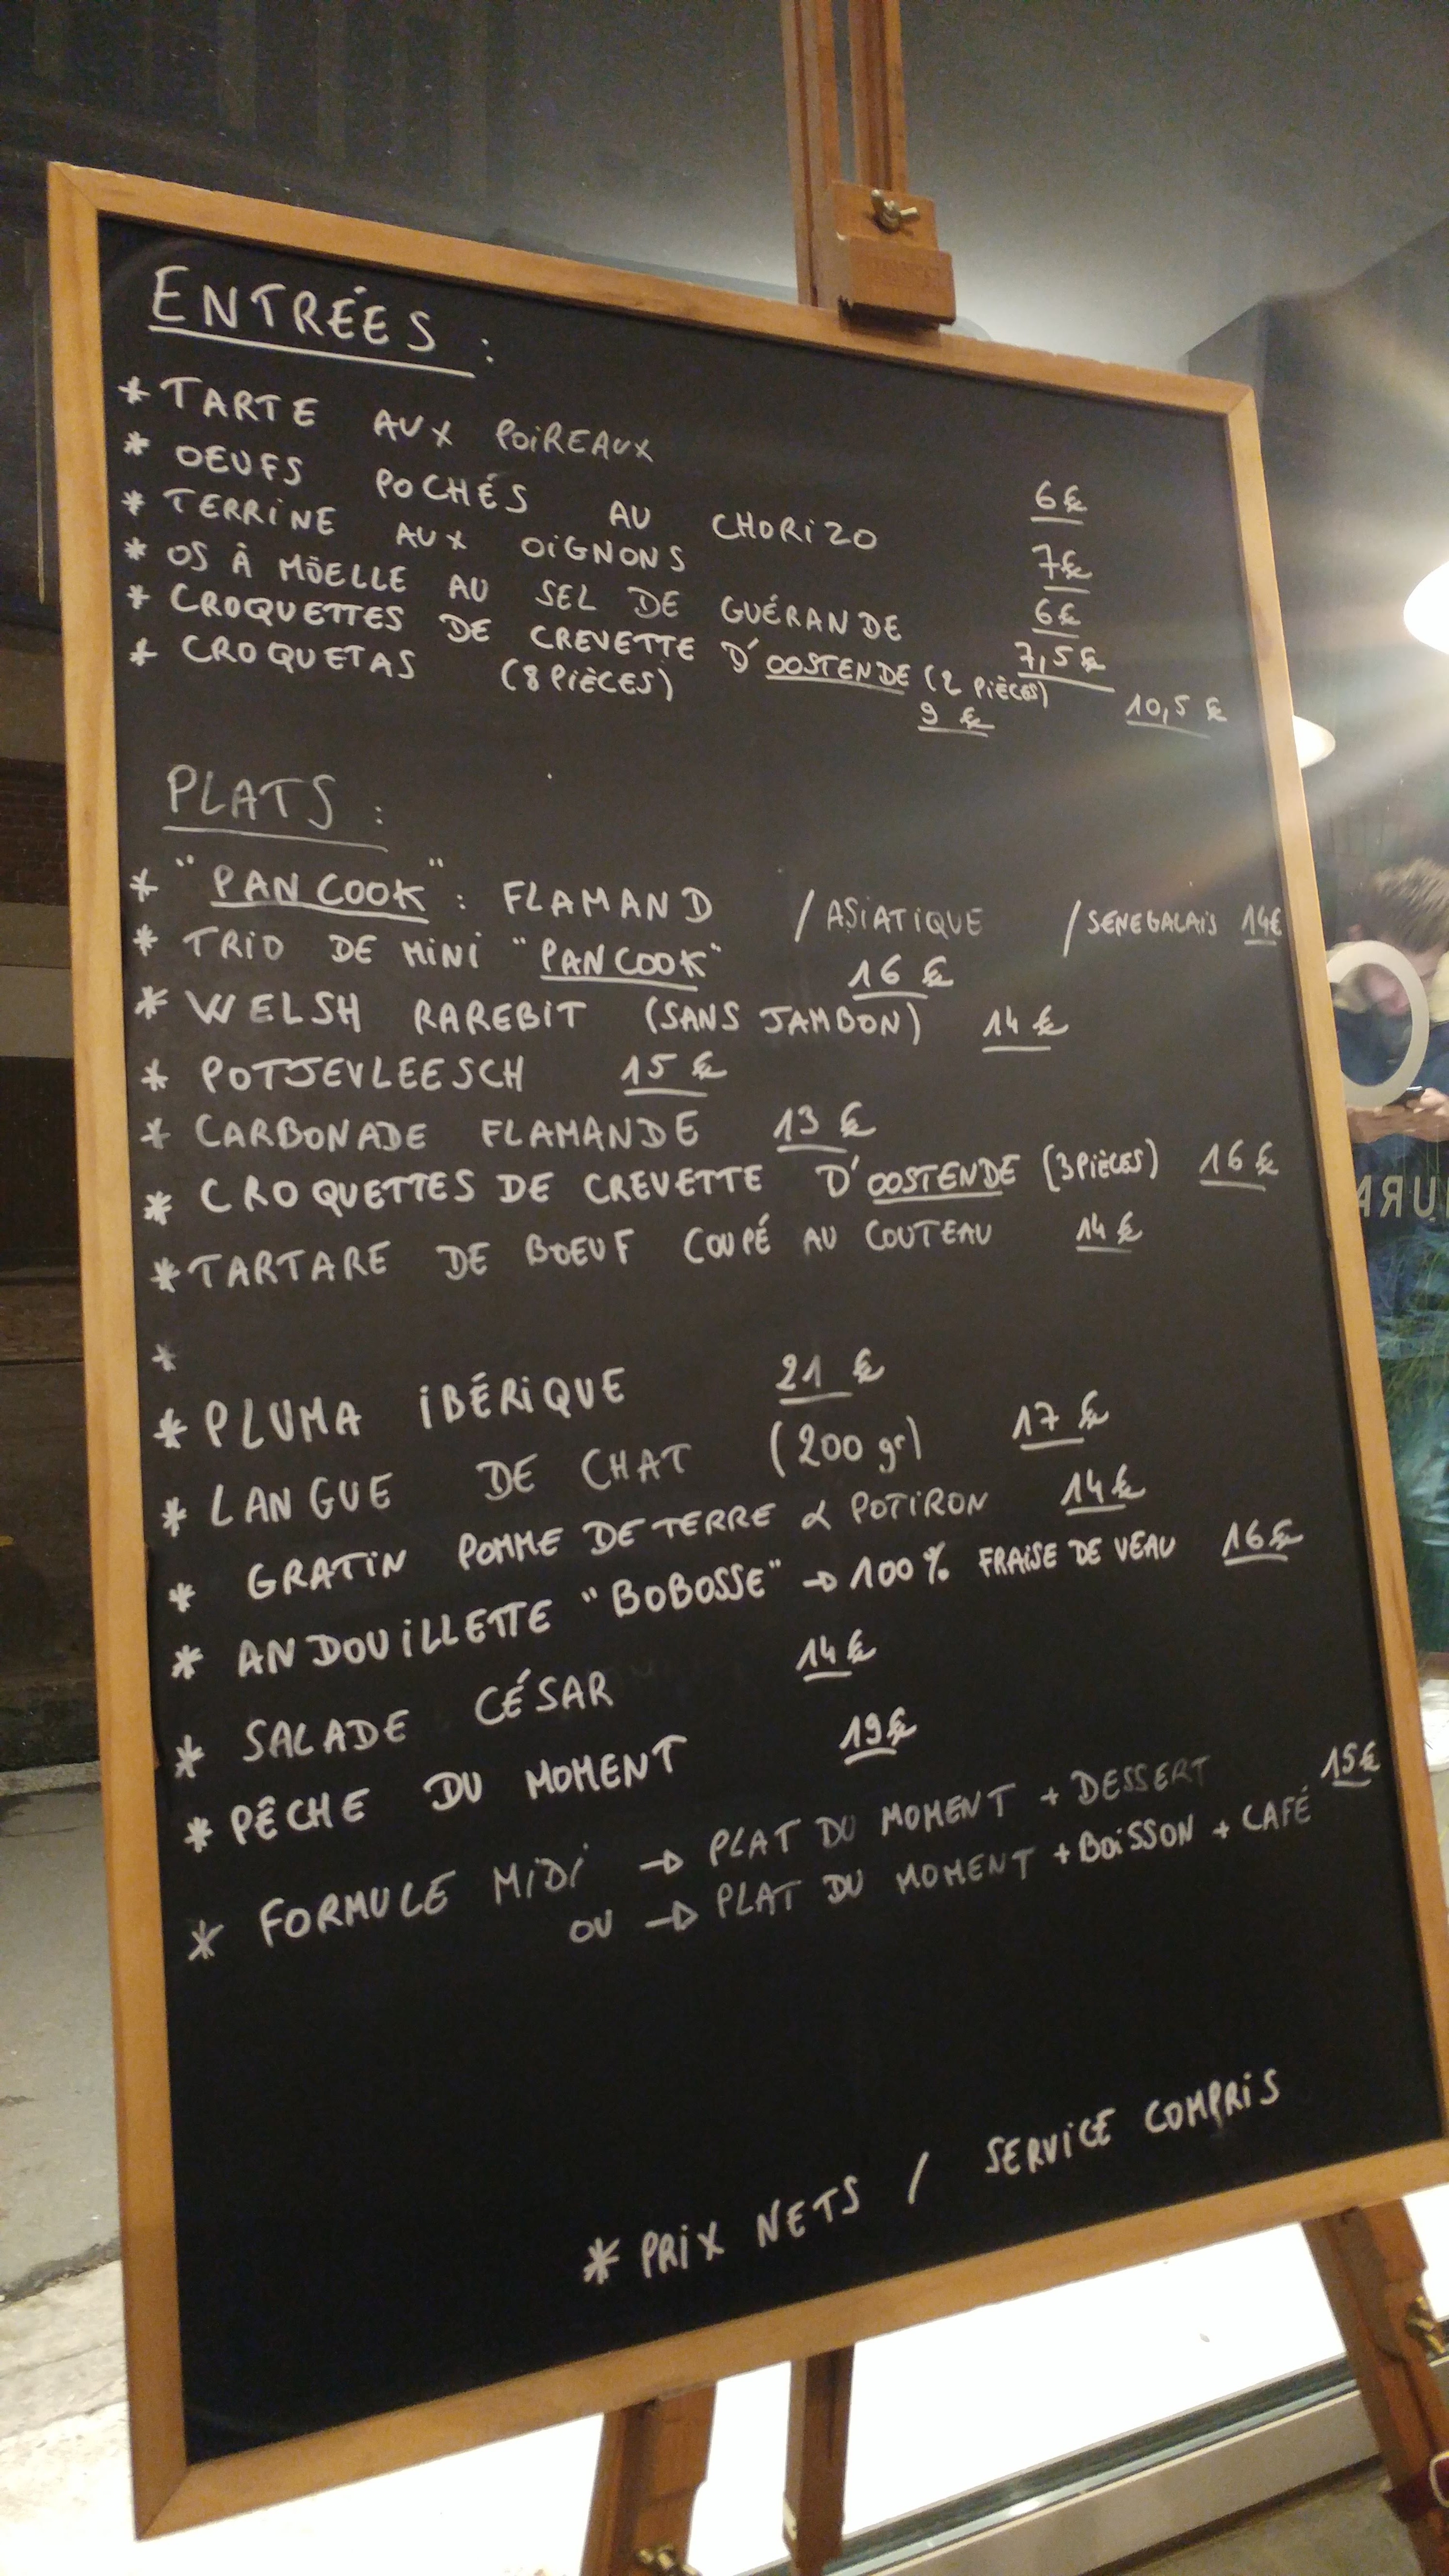 ENTRÉES :
* TARTE AUX POIREAUX 6€
* OEUFS POCHÉS AU CHORIZO 7€
* TERRINE AUX OIGNONS 6€
* OS À MÖELLE AU SEL DE GUÉRANDE 7,5€
* CROQUETTES DE CREVETTE D'OOSTENDE (2 PIÈCES) 10,5 €
* CROQUETAS (8 PIÈCES) 9 €
PLATS :
* "PAN COOK" : FLAMAND / ASIATIQUE / SENEGALAIS 14€
* TRIO DE MINI "PAN COOK" 16 €
* WELSH RAREBIT (SANS JAMBON) 14 €
* POTJEVLEESCH 15 €
* CARBONADE FLAMANDE 13 €
* CROQUETTES DE CREVETTE D'OOSTENDE (3 PIÈCES) 16 €
* TARTARE DE BOEUF COUPÉ AU COUTEAU 14 €
*
* PLUMA IBÉRIQUE 21 €
* LANGUE DE CHAT (200 gr) 17 €
* GRATIN POMME DE TERRE & POTIRON 14 €
* ANDOUILLETTE "BOBOSSE" → 100 % FRAISE DE VEAU 16€
* SALADE CÉSAR 14 €
* PÊCHE DU MOMENT 19€
* FORMULE MIDI → PLAT DU MOMENT + DESSERT 15€
OU → PLAT DU MOMENT + BOISSON + CAFÉ
* PRIX NETS / SERVICE COMPRIS